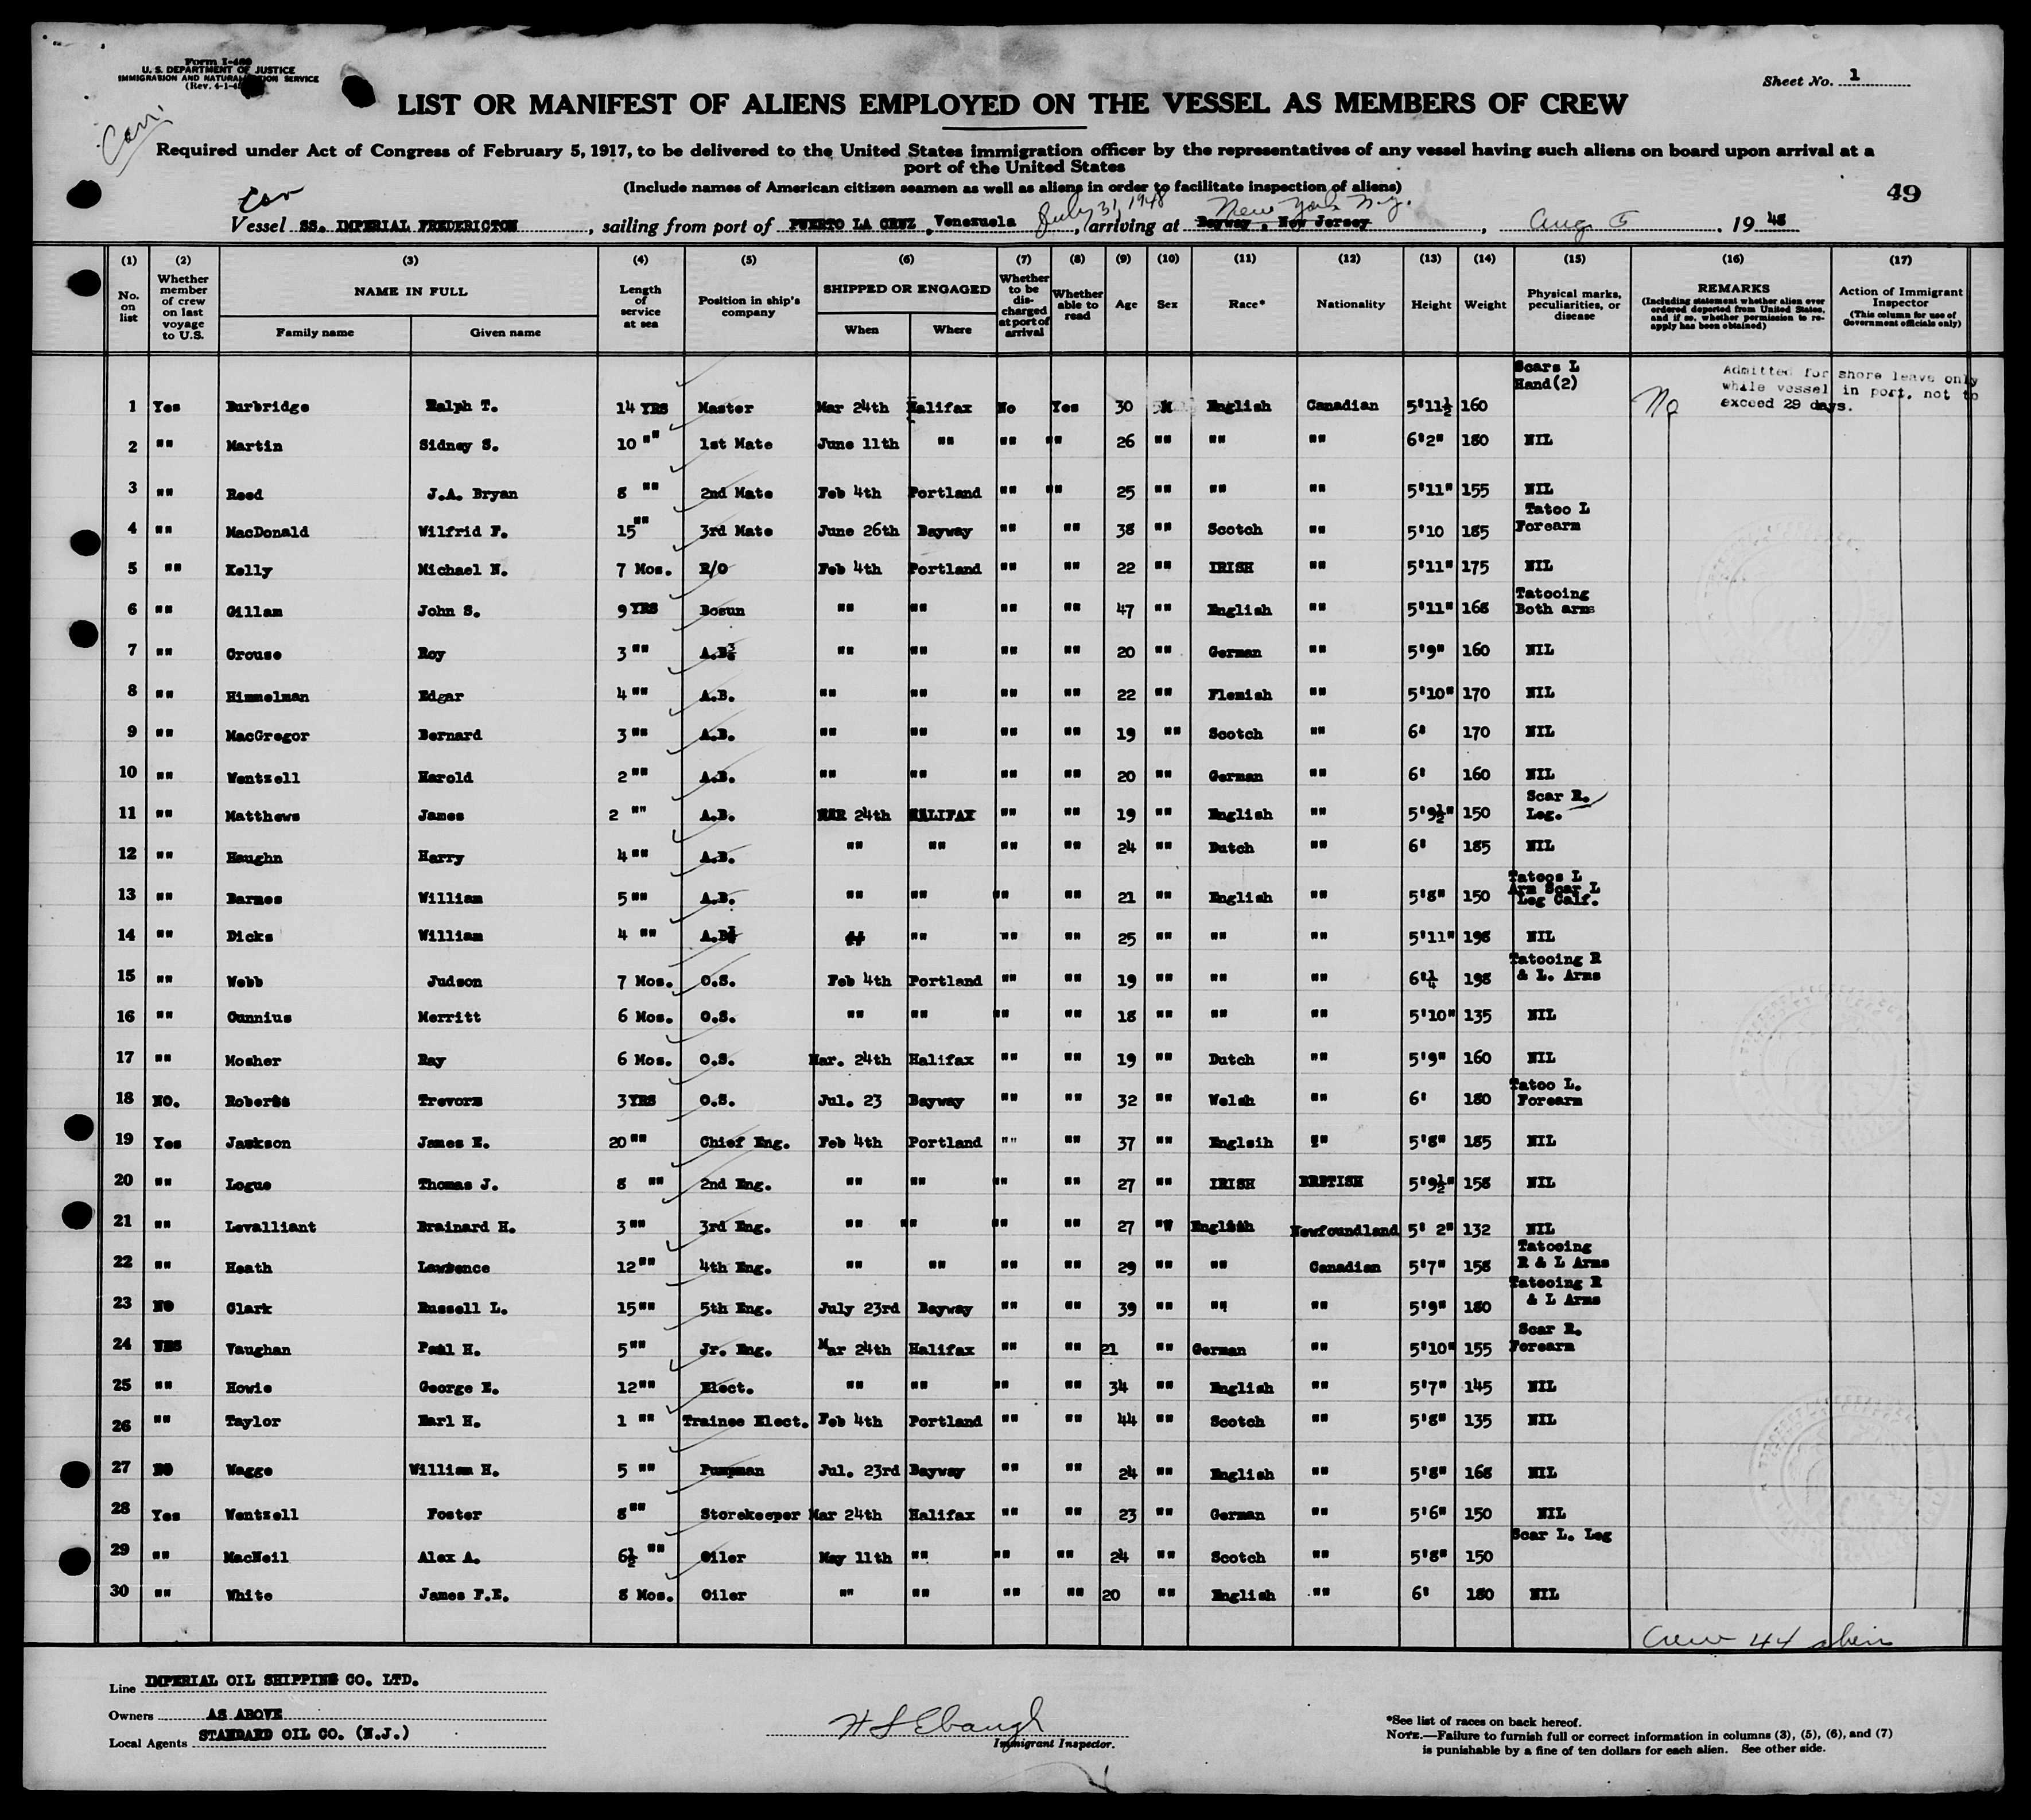 Form I-480
U. S. DEPARTMENT OF JUSTICE
IMMIGRATION AND NATURALIZATION SERVICE
(Rev. 4-1-4
Sheet No. 1
LIST OR MANIFEST OF ALIENS EMPLOYED ON THE VESSEL AS MEMBERS OF CREW
Required under Act of Congress of February 5, 1917, to be delivered to the United States immigration officer by the representatives of any vessel having such aliens on board upon arrival at a
port of the United States
(Include names of American citizen seamen as well as aliens in order to facilitate inspection of aliens)
49
Vessel SS. IMPERIAL FREDERICTON, sailing from port of PUERTO LA CRUZ, Venezuela July 31, 1948, arriving at Bayway, New Jersey New York N.Y., Aug 5, 19 48
(1) (2) (3) (4) (5) (6) (7) (8) (9) (10) (11) (12) (13) (14) (15) (16) (17)
No. on list
Whether member of crew on last voyage to U.S.
NAME IN FULL
Family name
Given name
Length of service at sea
Position in ship's company
SHIPPED OR ENGAGED
When
Where
Whether to be discharged at port of arrival
Whether able to read
Age
Sex
Race*
Nationality
Height
Weight
Physical marks, peculiarities, or disease
REMARKS
(Including statement whether alien ever ordered deported from United States, and if so, whether permission to reapply has been obtained)
Action of Immigrant Inspector
(This column for use of Government officials only)
1 Yes Burbridge Ralph T. 14 YRS Master Mar 24th Halifax No Yes 30 M English Canadian 5'11½ 160 Scars L Hand(2) No
Admitted for shore leave only
while vessel in port, not to
exceed 29 days.
2 "" Martin Sidney S. 10 "" 1st Mate June 11th "" "" "" 26 "" "" "" 6'2" 180 NIL
3 "" Reed J.A. Bryan 8 "" 2nd Mate Feb 4th Portland "" "" 25 "" "" "" 5'11" 155 NIL
4 "" MacDonald Wilfrid F. 15 "" 3rd Mate June 26th Bayway "" "" 38 "" Scotch "" 5'10 185 Tatoo L Forearm
5 "" Kelly Michael N. 7 Mos. R/O Feb 4th Portland "" "" 22 "" IRISH "" 5'11" 175 NIL
6 "" Gillam John S. 9 YRS Bosun "" "" "" "" 47 "" English "" 5'11" 168 Tatooing Both arms
7 "" Crouse Roy 3 "" A.B. "" "" "" "" 20 "" German "" 5'9" 160 NIL
8 "" Himmelman Edgar 4 "" A.B. "" "" "" "" 22 "" Flemish "" 5'10" 170 NIL
9 "" MacGregor Bernard 3 "" A.B. "" "" "" "" 19 "" Scotch "" 6' 170 NIL
10 "" Wentzell Harold 2 "" A.B. "" "" "" "" 20 "" German "" 6' 160 NIL
11 "" Matthews James 2 "" A.B. MAR 24th HALIFAX "" "" 19 "" English "" 5'9½" 150 Scar R. Leg.
12 "" Haughn Harry 4 "" A.B. "" "" "" "" 24 "" Dutch "" 6' 185 NIL
13 "" Barnes William 5 "" A.B. "" "" "" "" 21 "" English "" 5'8" 150 Tatoos L Arm Scar L Leg Calf.
14 "" Dicks William 4 "" A.B. "" "" "" "" 25 "" "" "" 5'11" 198 NIL
15 "" Webb Judson 7 Mos. O.S. Feb 4th Portland "" "" 19 "" "" "" 6'¼ 198 Tatooing R & L. Arms
16 "" Cunnius Merritt 6 Mos. O.S. "" "" "" "" 18 "" "" "" 5'10" 135 NIL
17 "" Mosher Ray 6 Mos. O.S. Mar. 24th Halifax "" "" 19 "" Dutch "" 5'9" 160 NIL
18 NO. Roberts Trevorm 3 YRS O.S. Jul. 23 Bayway "" "" 32 "" Welsh "" 6' 180 Tatoo L. Forearm
19 Yes Jackson James E. 20 "" Chief Eng. Feb 4th Portland "" "" 37 "" Englsih "" 5'8" 185 NIL
20 "" Logue Thomas J. 8 "" 2nd Eng. "" "" "" "" 27 "" IRISH BRITISH 5'9½" 158 NIL
21 "" Levalliant Brainard H. 3 "" 3rd Eng. "" "" "" "" 27 "" English Newfoundland 5' 2" 132 NIL
22 "" Heath Lawrence 12 "" 4th Eng. "" "" "" "" 29 "" "" Canadian 5'7" 158 Tatooing R & L Arms
23 NO Clark Russell L. 15 "" 5th Eng. July 23rd Bayway "" "" 39 "" "" "" 5'9" 180 Tatooing R & L Arms
24 YES Vaughan Paul H. 5 "" Jr. Eng. Mar 24th Halifax "" "" 21 "" German "" 5'10" 155 Scar R. Forearm
25 "" Howie George E. 12 "" Elect. "" "" "" "" 34 "" English "" 5'7" 145 NIL
26 "" Taylor Earl H. 1 "" Trainee Elect. Feb 4th Portland "" "" 44 "" Scotch "" 5'8" 135 NIL
27 NO Wagge William H. 5 "" Pumpman Jul. 23rd Bayway "" "" 24 "" English "" 5'8" 168 NIL
28 Yes Wentzell Foster 8 "" Storekeeper Mar 24th Halifax "" "" 23 "" German "" 5'6" 150 NIL
29 "" MacNeil Alex A. 6½ "" Oiler May 11th "" "" "" 24 "" Scotch "" 5'8" 150 Scar L. Leg
30 "" White James F.E. 8 Mos. Oiler "" "" "" "" 20 "" English "" 6' 180 NIL
Crew 44 alien
Line IMPERIAL OIL SHIPPING CO. LTD.
Owners AS ABOVE
Local Agents STANDARD OIL CO. (N.J.)
H S Ebaugh
Immigrant Inspector.
*See list of races on back hereof.
NOTE.—Failure to furnish full or correct information in columns (3), (5), (6), and (7)
is punishable by a fine of ten dollars for each alien. See other side.